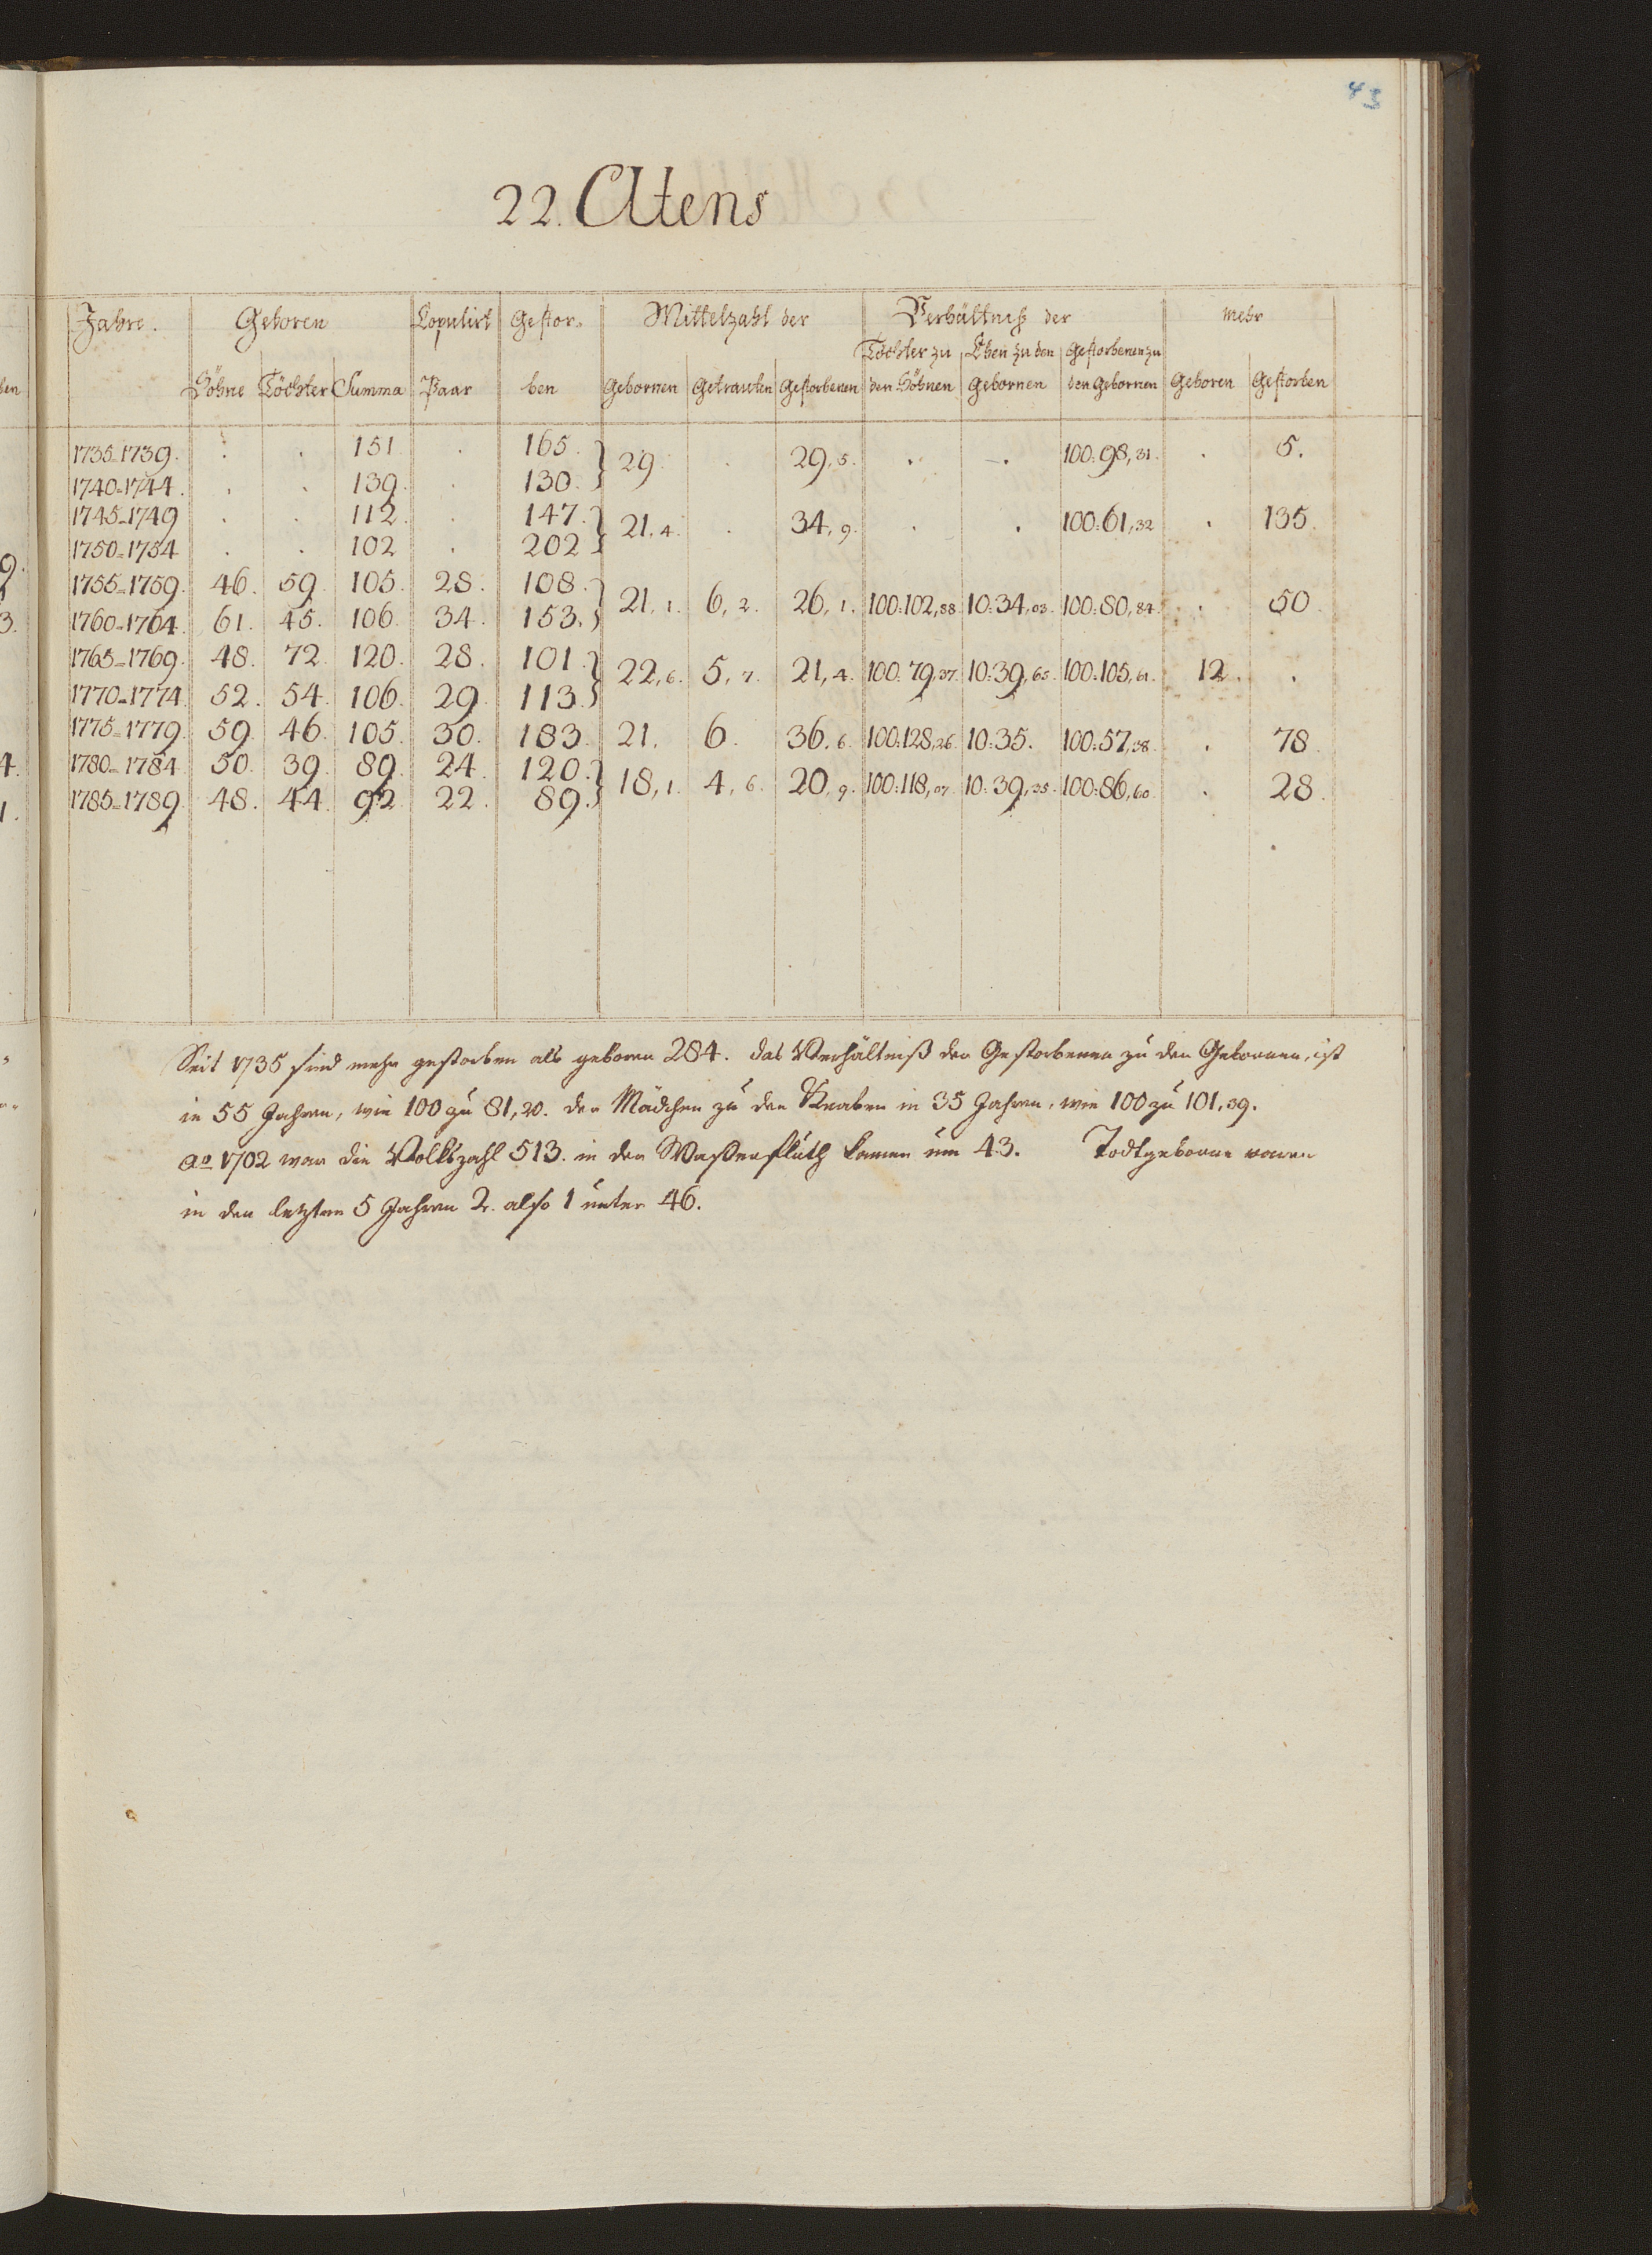 43
22. Atens
Jahre. Geboren Copulirt Gestor- Mittelzahl der Verhältniß der mehr
Töchter zu Ehen zu den Gestorbenen zu
Söhne Töchter Summa Paar ben Gebornen Getrauten Gestorbenen den Söhnen Gebornen den Gebornen Geboren Gestorben
1735-1739. . . 151. . 165. } 29. . 29,5. . . 100:98,31. . 5.
1740-1744. . . 139. . 130.
1745-1749 . . 112. . 147. } 21,4. . 34,9. . . 100:61,32 . 135.
1750-1754 . . 102 . 202
1755-1759. 46. 59. 105. 28. 108. } 21,1. 6,2. 26,1. 100:102,88. 10:34,03. 100:80,84. . 50.
1760-1764. 61. 45. 106. 34. 153.
1765-1769. 48. 72. 120. 28. 101. } 22,6. 5,7. 21,4. 100:79,37. 10:39,65. 100:105,61. 12. .
1770-1774. 52. 54. 106. 29. 113.
1775-1779. 59. 46. 105. 30. 183. 21. 6. 36,6. 100:128,26. 10:35. 100:57,38. . 78.
1780-1784. 50. 39. 89. 24. 120. } 18,1. 4,6. 20,9. 100:118,07. 10:39,35. 100:86,60. . 28.
1785-1789. 48. 44. 92. 22. 89.
Seit 1735 sind mehr gestorben als geboren 284. das Verhältniß der Gestorbenen zu den Gebornen, ist
in 55 Jahren, wie 100 zu 81,20. der Mädchen zu den Knaben in 35 Jahren, wie 100 zu 101,39.
ao 1702 war die Volkszahl 513. in der Waßerfluth kamen um 43. Todtgeborne waren
in den letzten 5 Jahren 2. also 1 unter 46.